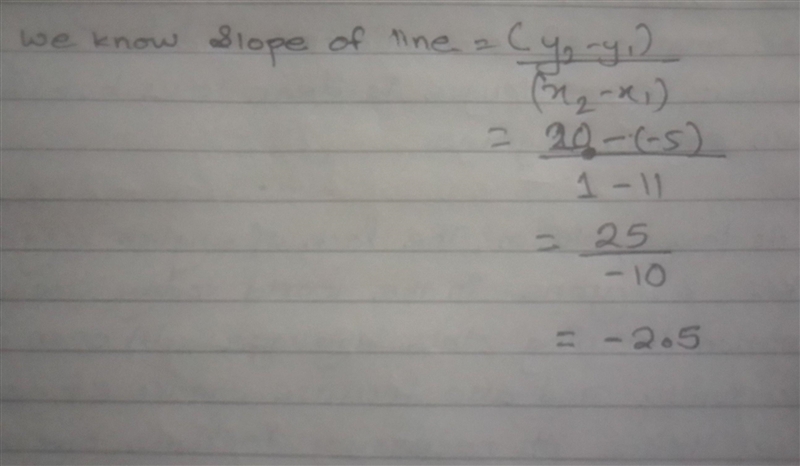 We know slope of line = (y₂-y₁)
(x₂-x₁)
= 20-(-5)
1-11
= 25
-10
= -2.5